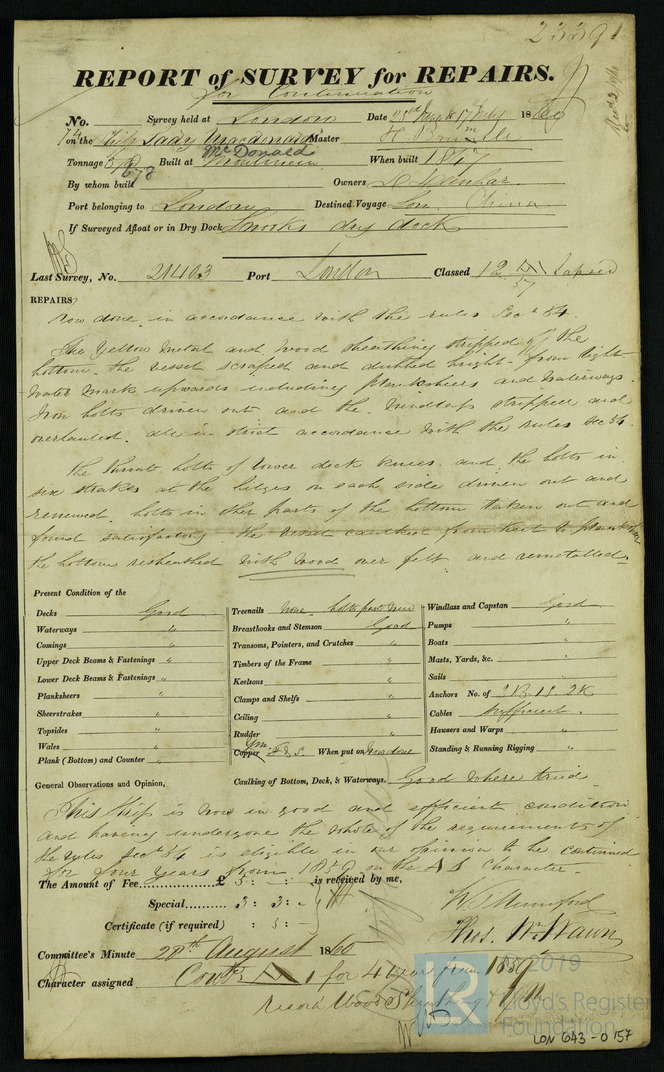 23391
REPORT of SURVEY for REPAIRS.
for Continuation
No. Survey held at London Date 1860
74 on the Ship Lady Macdonald Master H
McDonald
Tonnage 678 Built at Moulmein When built 1847
By whom built Owners D Dunbar
Port belonging to London Destined Voyage China
If Surveyed Afloat or in Dry Dock dry dock
Last Survey, No. 21403 Port London Classed 12 A1 Lapsed
57
REPAIRS
Now done in accordance with the rules Sect 54.
The Yellow Metal and wood sheathing stripped off the
bottom. the vessel scraped and dubbed bright from light
water mark upwards including planksheers and waterways.
Iron bolts driven out and the Windlass stripped and
overhauled. all in strict accordance with the rules Sec 54.
The throat bolts of lower deck knees and the bolts in
six strakes at the bilges on each side driven out and
renewed. bolts in other parts of the bottom taken out and
found satisfactory the vessel caulked from keel to
the bottom resheathed with wood over felt and remetalled.
Present Condition of the
Decks Good
Waterways "
Comings "
Upper Deck Beams & Fastenings "
Lower Deck Beams & Fastenings "
Planksheers "
Sheerstrakes "
Topsides "
Wales "
Plank (Bottom) and Counter "
Treenails None bolts part New
Breasthooks and Stemson Good
Transoms, Pointers, and Crutches "
Timbers of the Frame "
Keelsons "
Clamps and Shelfs "
Ceiling "
Rudder "
Copper Y.M. F & S. When put on Now done
Caulking of Bottom, Deck, & Waterways. Good where tried
Windlass and Capstan Good
Pumps "
Boats "
Masts, Yards, &c. "
Sails "
Anchors No. of 3B. 1S. 2K
Cables sufficient.
Hausers and Warps "
Standing & Running Rigging "
General Observations and Opinion,
This Ship is now in good and efficient condition
and having undergone the whole of the requirements of
the rules Sect 54 is eligible in our opinion to be continued
for four years from 1859 on the A1 Character.
The Amount of Fee £ 5 : - : - is received by me,
Special 3 : 3 : -
Certificate (if required) : 5 :
Committee's Minute 28th August 1860
Character assigned Contd A 1 for 4 years from 1859
© 2019
Lloyd's Register
Foundation
LR
LON 643 - 0157